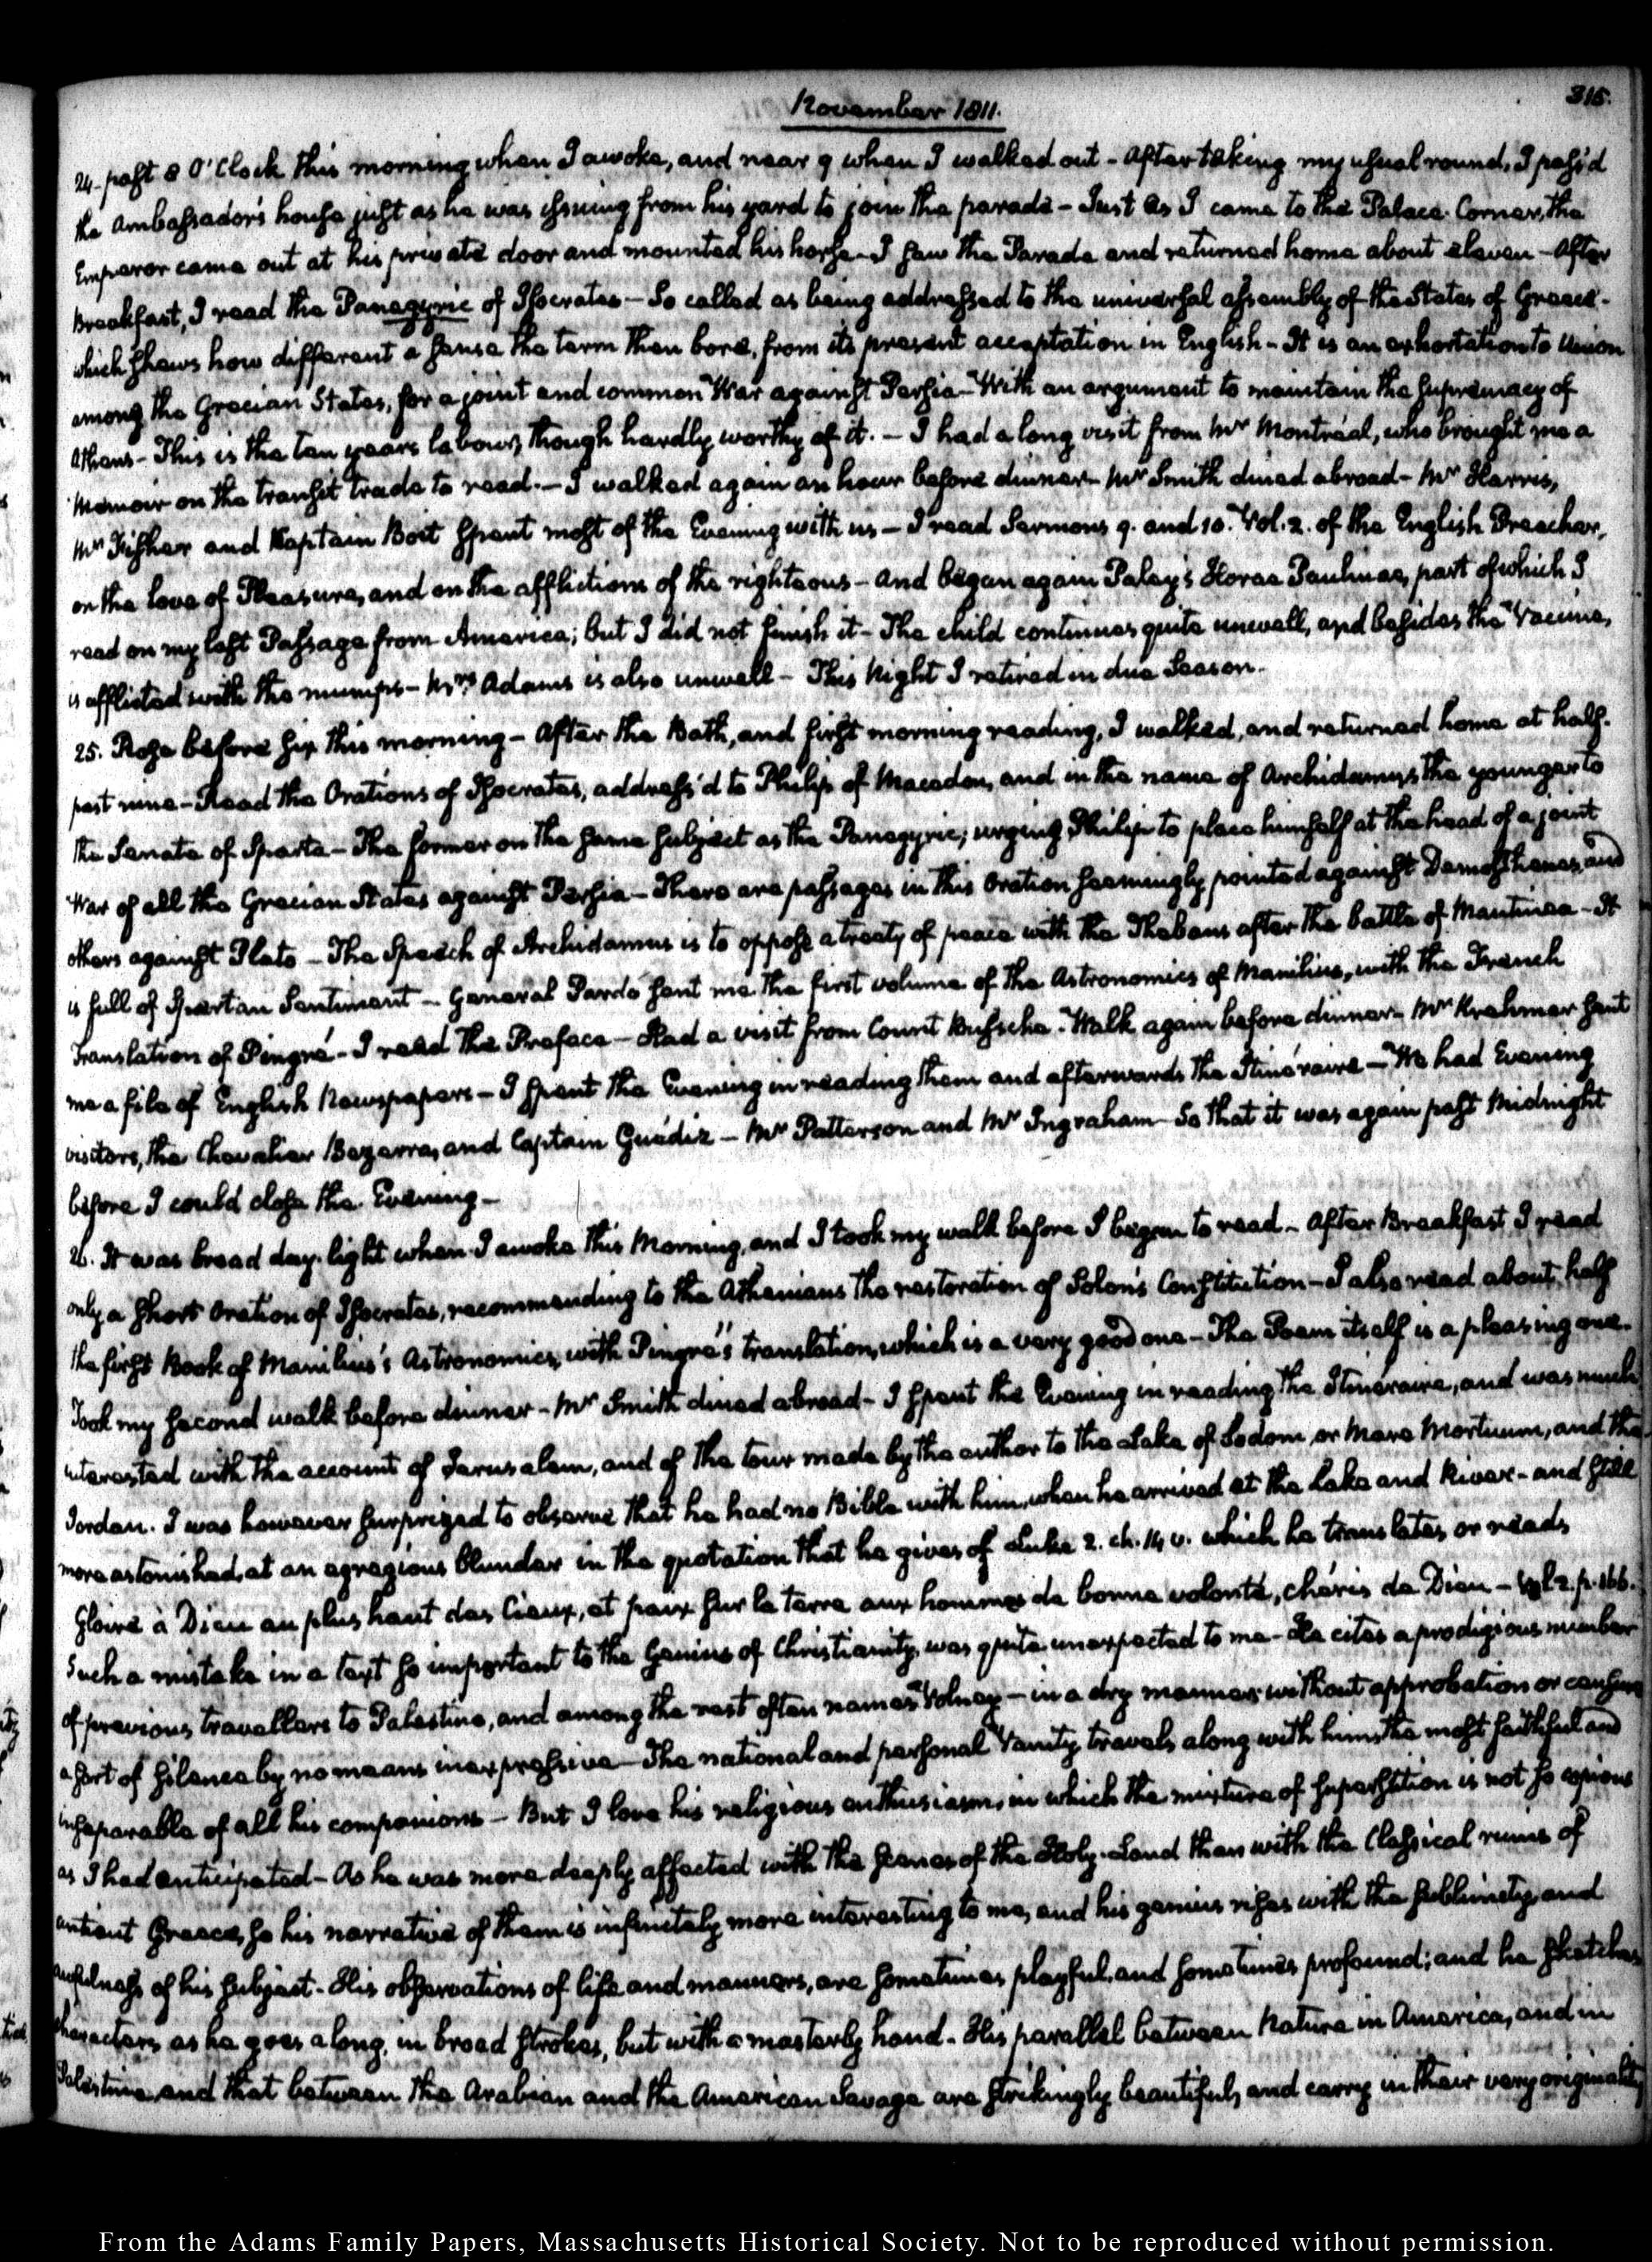 November 1811.
315.
24. past 8 O'Clock this morning when I awoke, and near 9 when I walked out - After taking my usual round, I pass'd
the Ambassador's house just as he was issuing from his yard to join the parade - Just as I came to the Palace Corner, the
Emperor came out at his private door and mounted his horse - I saw the Parade and returned home about eleven - After
Breakfast, I read the Panegyric of Isocrates - So called as being addressed to the universal assembly of the States of Greece -
which shews how different a sense the term then bore, from its present acceptation in English - It is an exhortation to Union
among the Grecian States, for a joint and common War against Persia - With an argument to maintain the supremacy of
Athens - This is the ten years labour, though hardly worthy of it. - I had a long visit from Mr Montréal, who brought me a
Memoir on the transit trade to read. - I walked again an hour before dinner - Mr Smith dined abroad - Mr Harris,
Mr Fisher and Captain Boit spent most of the Evening with us - I read Sermons 9. and 10. Vol. 2. of the English Preacher,
on the love of Pleasure, and on the afflictions of the righteous - And began again Paley's Horae Paulinae, part of which I
read on my last Passage from America; but I did not finish it - The child continues quite unwell, and besides the Vaccine,
is afflicted with the mumps - Mrs Adams is also unwell - This Night I retired in due Season.
25. Rose before six this morning - After the Bath, and first morning reading, I walked, and returned home at half-
past nine - Read the Orations of Isocrates, address'd to Philip of Macedon, and in the name of Archidamus the younger to
the Senate of Sparta - The former on the same subject as the Panegyric; urging Philip to place himself at the head of a joint
War of all the Grecian States against Persia - There are passages in this Oration seemingly pointed against Demosthenes, and
others against Plato - The Speech of Archidamus is to oppose a treaty of peace with the Thebans after the battle of Mantinea - It
is full of Spartan Sentiment - General Pardo sent me the first volume of the Astronomics of Manilius, with the French
Translation of Pingré - I read the Preface - Had a visit from Count Bussche. Walk again before dinner - Mr Krehmer sent
me a file of English Newspapers - I spent the Evening in reading them and afterwards the Itinéraire - We had Evening
visitors, the Chevalier Bezerra, and Captain Guédiz - Mr Patterson and Mr Ingraham - So that it was again past Midnight
before I could close the Evening -
26. It was broad day-light when I awoke this Morning, and I took my walk before I began to read - After Breakfast I read
only a short Oration of Isocrates, recommending to the Athenians the restoration of Solon's Constitution - I also read about half
the first Book of Manilius's Astronomics, with Pingré's translation, which is a very good one - The Poem itself is a pleasing one.
Took my second walk before dinner - Mr Smith dined abroad - I spent the Evening in reading the Itinéraire, and was much
interested with the account of Jerusalem, and of the tour made by the author to the Lake of Sodom or Mare Mortuum, and the
Jordan. I was however surprized to observe that he had no Bible with him, when he arrived at the Lake and River - and still
more astonished, at an egregious blunder in the quotation that he gives of Luke 2. ch. 14 v. which he translates, or reads,
Gloire à Dieu au plus haut des Cieux, et paix sur la terre aux hommes de bonne volonté, chéris de Dieu - Vol 2. p. 166.
Such a mistake in a text so important to the Genius of Christianity, was quite unexpected to me - He cites a prodigious number
of previous travellers to Palestine, and among the rest often names Volney - in a dry manner, without approbation or censure
a sort of silence by no means inexpressive - The national and personal Vanity, travels along with him, the most faithful and
inseparable of all his companions - But I love his religious enthusiasm, in which the mixture of superstition is not so copious
as I had anticipated - As he was more deeply affected with the scenes of the Holy-Land than with the Classical ruins of
antient Greece, so his narrative of them is infinitely more interesting to me, and his genius rises with the sublimity, and
awfulness of his subject. His observations of life and manners, are sometimes playful, and sometimes profound; and he sketches
characters as he goes along, in broad strokes, but with a masterly hand. His parallel between Nature in America, and in
Palestine, and that between the Arabian and the American Savage are strikingly beautiful, and carry in their very originality
From the Adams Family Papers, Massachusetts Historical Society. Not to be reproduced without permission.